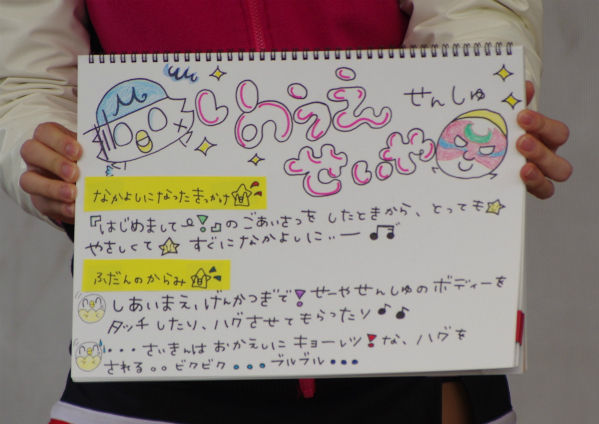 いのうえ せんしゅ
せいや
なかよしになったきっかけ
『はじめまして〜!』のごあいさつを したときから、とっても☆
やさしくて☆ すぐになかよしに‥ー♫
ふだんのからみ
しあいまえ、げんかつぎで!せーやせんしゅのボディーを
タッチしたり、ハグさせてもらったり♪♪
・・・さいきんは おかえしに キョーレツ!な、ハグを
される。。ビクビク・・・ブルブル・・・